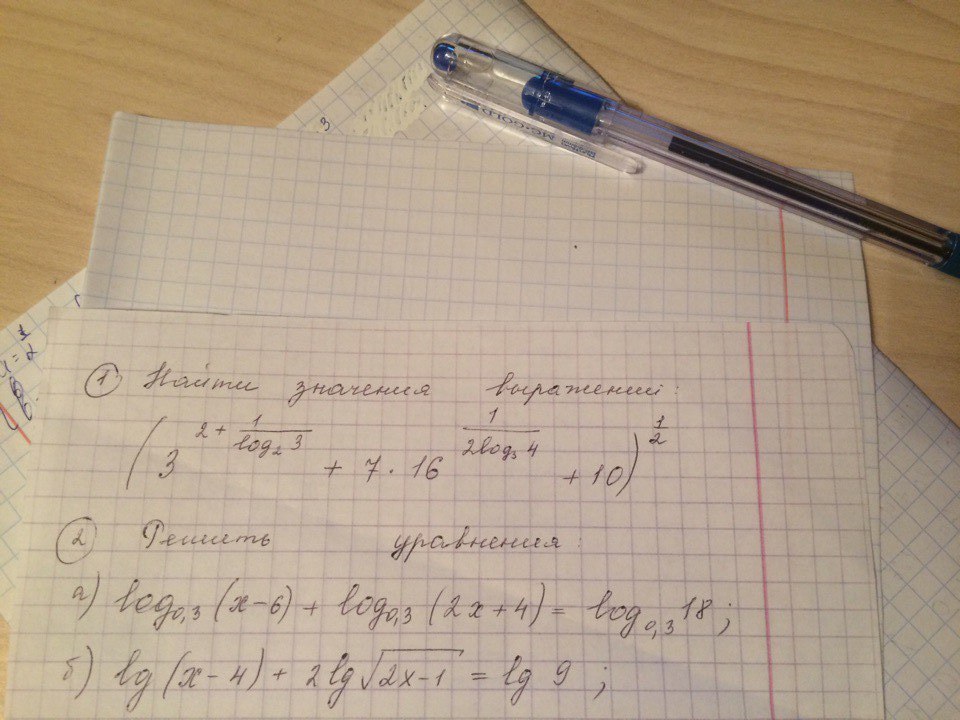 ① Найти значения выражений:
(3^(2 + 1/log₂ 3) + 7 · 16^(1/(2log₃ 4)) + 10)^(1/2)
② Решить уравнения:
а) log₀,₃ (x-6) + log₀,₃ (2x+4) = log₀,₃ 18;
б) lg (x-4) + 2lg √(2x-1) = lg 9;